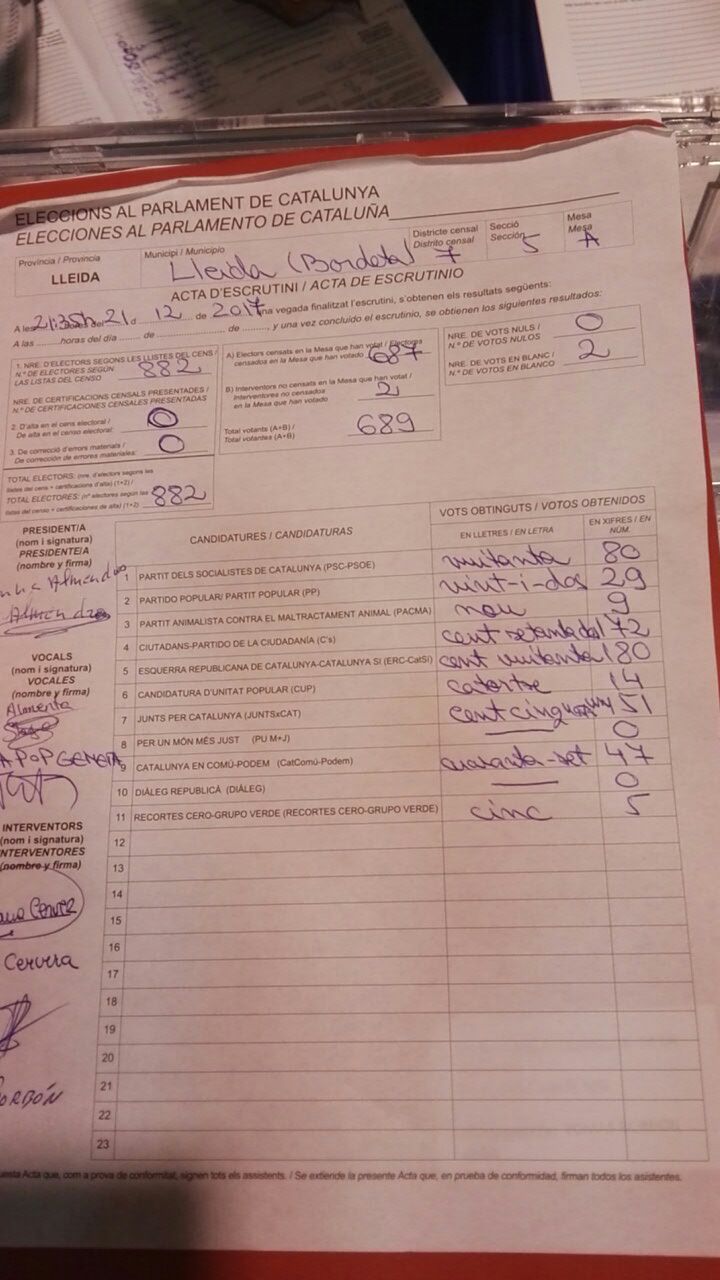 ELECCIONS AL PARLAMENT DE CATALUNYA
ELECCIONES AL PARLAMENTO DE CATALUÑA
Província / Provincia
LLEIDA
Municipi / Municipio
Lleida (Bordeta)
Districte censal
Distrito censal
7
Secció
Sección
5
Mesa
Mesa
A
ACTA D'ESCRUTINI / ACTA DE ESCRUTINIO
A les 21:35h 21 d 12 de 2017 na vegada finalitzat l'escrutini, s'obtenen els resultats següents:
A las horas del día de de , y una vez concluido el escrutinio, se obtienen los siguientes resultados:
1. NRE. D'ELECTORS SEGONS LES LLISTES DEL CENS /
N.º DE ELECTORES SEGÚN
LAS LISTAS DEL CENSO
882
NRE. DE CERTIFICACIONS CENSALS PRESENTADES /
N.º DE CERTIFICACIONES CENSALES PRESENTADAS
2. D'alta en el cens electoral /
De alta en el censo electoral:
0
3. De correcció d'errors materials /
De corrección de errores materiales:
0
TOTAL ELECTORS: (nre. d'electors segons les
llistes del cens + certificacions d'alta) (1+2) /
TOTAL ELECTORES: (nº electores según las
listas del censo + certificaciones de alta) (1+2)
882
A) Electors censats en la Mesa que han votat / Electores
censados en la Mesa que han votado
687
B) Interventors no censats en la Mesa que han votat /
Interventores no censados
en la Mesa que han votado
2
Total votants (A+B) /
Total votantes (A+B)
689
NRE. DE VOTS NULS /
N.º DE VOTOS NULOS
0
NRE. DE VOTS EN BLANC /
N.º DE VOTOS EN BLANCO
2
PRESIDENT/A
(nom i signatura)
PRESIDENTE/A
(nombre y firma)
VOCALS
(nom i signatura)
VOCALES
(nombre y firma)
INTERVENTORS
(nom i signatura)
INTERVENTORES
(nombre y firma)
Cervera
CANDIDATURES / CANDIDATURAS
VOTS OBTINGUTS / VOTOS OBTENIDOS
EN LLETRES / EN LETRA
EN XIFRES / EN NÚM.
1 PARTIT DELS SOCIALISTES DE CATALUNYA (PSC-PSOE) vuitanta 80
2 PARTIDO POPULAR/ PARTIT POPULAR (PP) vint-i-dos 29
3 PARTIT ANIMALISTA CONTRA EL MALTRACTAMENT ANIMAL (PACMA) nou 9
4 CIUTADANS-PARTIDO DE LA CIUDADANÍA (C's) cent setanta dos 172
5 ESQUERRA REPUBLICANA DE CATALUNYA-CATALUNYA SÍ (ERC-CatSí) cent vuitanta 180
6 CANDIDATURA D'UNITAT POPULAR (CUP) catortze 14
7 JUNTS PER CATALUNYA (JUNTSxCAT) 151
8 PER UN MÓN MÉS JUST (PU M+J) 0
9 CATALUNYA EN COMÚ-PODEM (CatComú-Podem) quaranta-set 47
10 DIÀLEG REPUBLICÀ (DIÀLEG) 0
11 RECORTES CERO-GRUPO VERDE (RECORTES CERO-GRUPO VERDE) cinc 5
12
13
14
15
16
17
18
19
20
21
22
23
Acta que, com a prova de conformitat, signen tots els assistents. / Se extiende la presente Acta que, en prueba de conformidad, firman todos los asistentes.